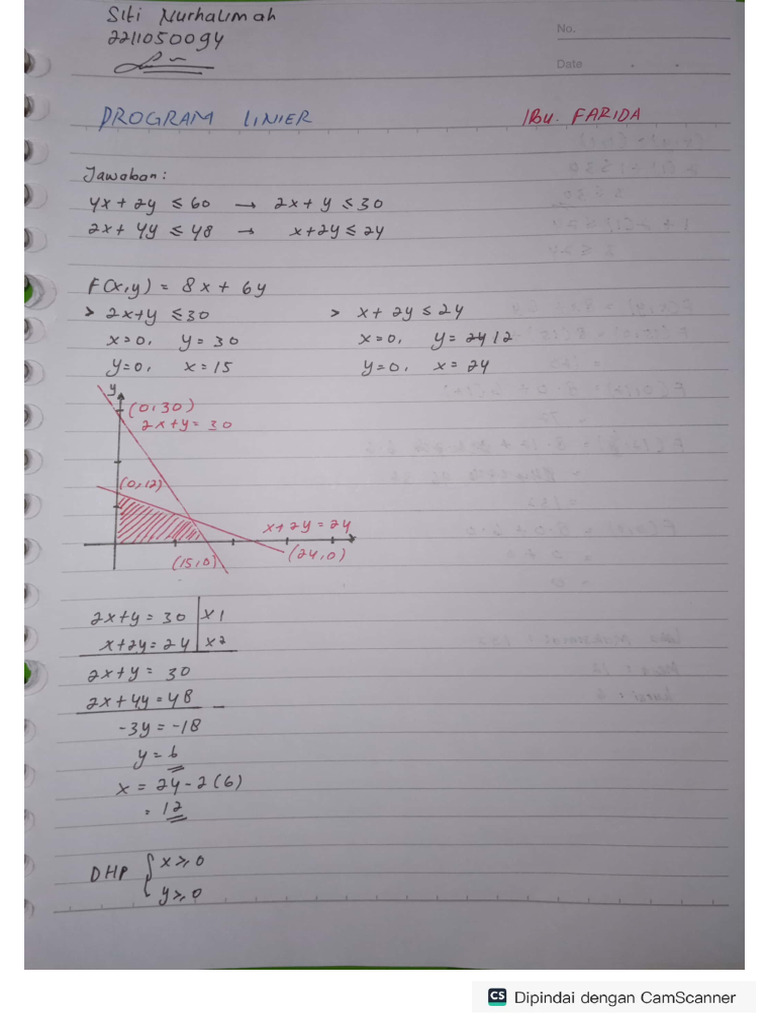 Siti Nurhalimah
2211050094
No.
Date
PROGRAM LINIER
IBU. FARIDA
Jawaban:
4x + 2y ≤ 60 → 2x + y ≤ 30
2x + 4y ≤ 48 → x + 2y ≤ 24
F(x,y) = 8x + 6y
> 2x+y ≤ 30 > x + 2y ≤ 24
x=0, y = 30 x=0, y = 12
y=0, x = 15 y=0, x = 24
y
(0,30)
2x+y = 30
(0,12)
x+2y = 24
(15,0) (24,0)
2x+y = 30 | x1
x+2y = 24 | x2
2x+y = 30
2x+4y = 48 -
-3y = -18
y = 6
x = 24 - 2(6)
= 12
DHP { x ≥ 0
y ≥ 0
CS Dipindai dengan CamScanner